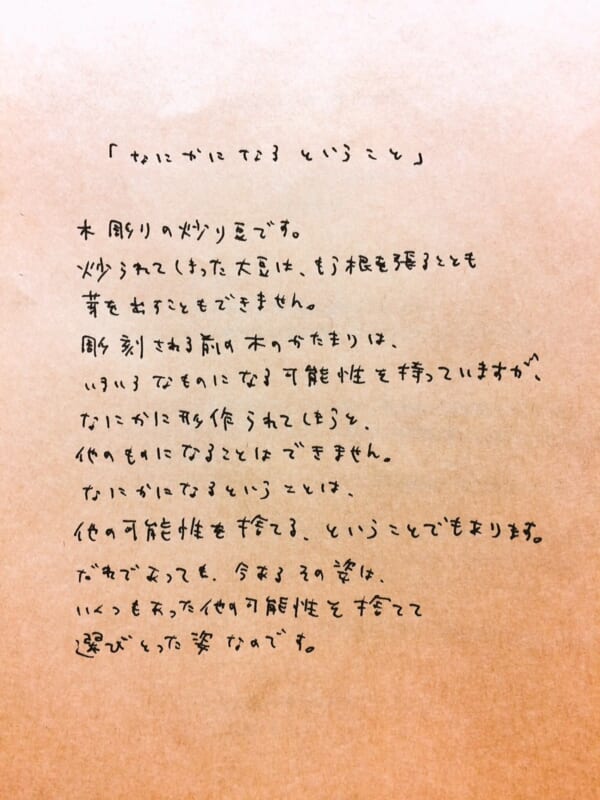 「なにかになるということ」
木彫りの炒り豆です。
炒られてしまった大豆は、もう根を張ることも
芽を出すこともできません。
彫刻される前の木のかたまりは、
いろいろなものになる可能性を持っていますが、
なにかに形作られてしまうと、
他のものになることはできません。
なにかになるということは、
他の可能性を捨てる、ということでもあります。
だれであっても、今あるその姿は、
いくつもあった他の可能性を捨てて
選びとった姿なのです。